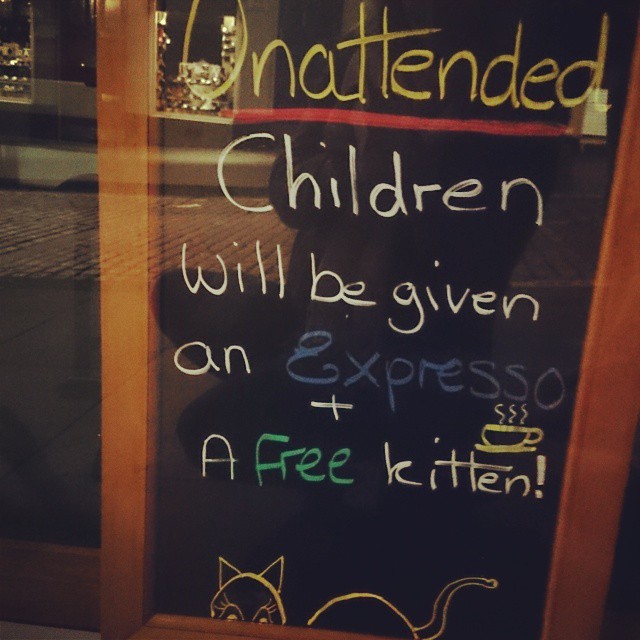 Unattended
Children
will be given
an Expresso
+
A Free kitten!